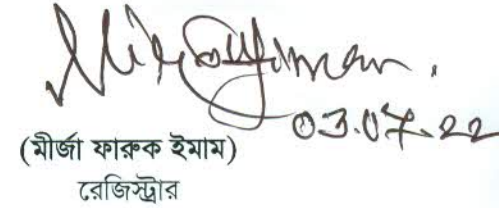 03.07.22
(মীর্জা ফারুক ইমাম)
রেজিস্ট্রার